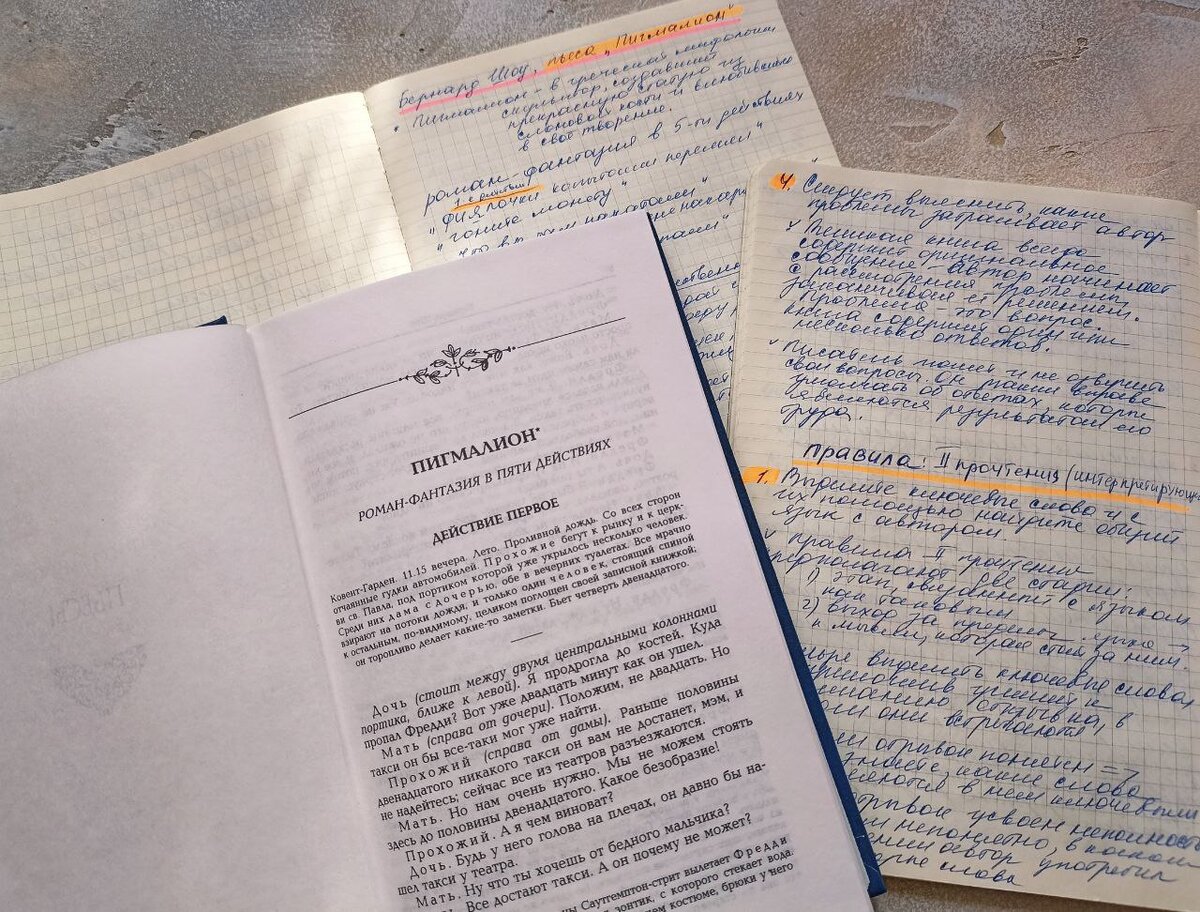 Бернард Шоу, пьеса "Пигмалион"
• Пигмалион - в греческой мифологии
скульптор, создавший
прекрасную статую из
слоновой кости и влюбившийся
в своё творение.
роман-фантазия в 5-ти действиях
1-е действие
"фиялочки копытами перемял"
"гоните монету"
4. Следует выяснить, какие
проблемы затрагивает автор
книга всегда
содержит оригинальное
сообщение - автор начинает
с рассмотрения проблемы,
заканчивая её решением.
Проблема - это вопрос.
Книга содержит один или
несколько ответов.
Писатель может и не озвучить
свои вопросы. Он также вправе
умолчать об ответах, которые
являются результатом его
труда.
Правила: II прочтения (интерпретирующ
1. Выделите ключевые слова и с
их помощью найдите общий
язык с автором.
Правила II прочтения
предполагают две стадии:
1) этап, связанный с языком
как таковым
2) выход за пределы языка →
к мысли, которая стоит за ним.
выделить ключевые слова,
они встречаются
отрывок понятен =>
знаете, какие слова
являются в нем ключевыми
отрывок усвоен неполностью
автор употребил
слова
ПИГМАЛИОН*
РОМАН-ФАНТАЗИЯ В ПЯТИ ДЕЙСТВИЯХ
ДЕЙСТВИЕ ПЕРВОЕ
Ковент-Гарден. 11.15 вечера. Лето. Проливной дождь. Со всех сторон
отчаянные гудки автомобилей. Прохожие бегут к рынку и к церк-
ви св. Павла, под портиком которой уже укрылось несколько человек.
Среди них дама с дочерью, обе в вечерних туалетах. Все мрачно
взирают на потоки дождя, и только один человек, стоящий спиной
к остальным, по-видимому, целиком поглощен своей записной книжкой;
он торопливо делает какие-то заметки. Бьет четверть двенадцатого.
Дочь (стоит между двумя центральными колоннами
портика, ближе к левой). Я продрогла до костей. Куда
пропал Фредди? Вот уже двадцать минут как он ушел.
Мать (справа от дочери). Положим, не двадцать. Но
такси он бы все-таки мог уже найти.
Прохожий (справа от дамы). Раньше половины
двенадцатого никакого такси он вам не достанет, мэм, и
не надейтесь; сейчас все из театров разъезжаются.
Мать. Но нам очень нужно. Мы не можем стоять
здесь до половины двенадцатого. Какое безобразие!
Прохожий. А я чем виноват?
Дочь. Будь у него голова на плечах, он давно бы на-
шел такси у театра.
Мать. Ну что ты хочешь от бедного мальчика?
Все достают такси. А он почему не может?
Саутгемптон-стрит вылетает Фредди
зонтик, с которого стекает вода.
костюме, брюки у него